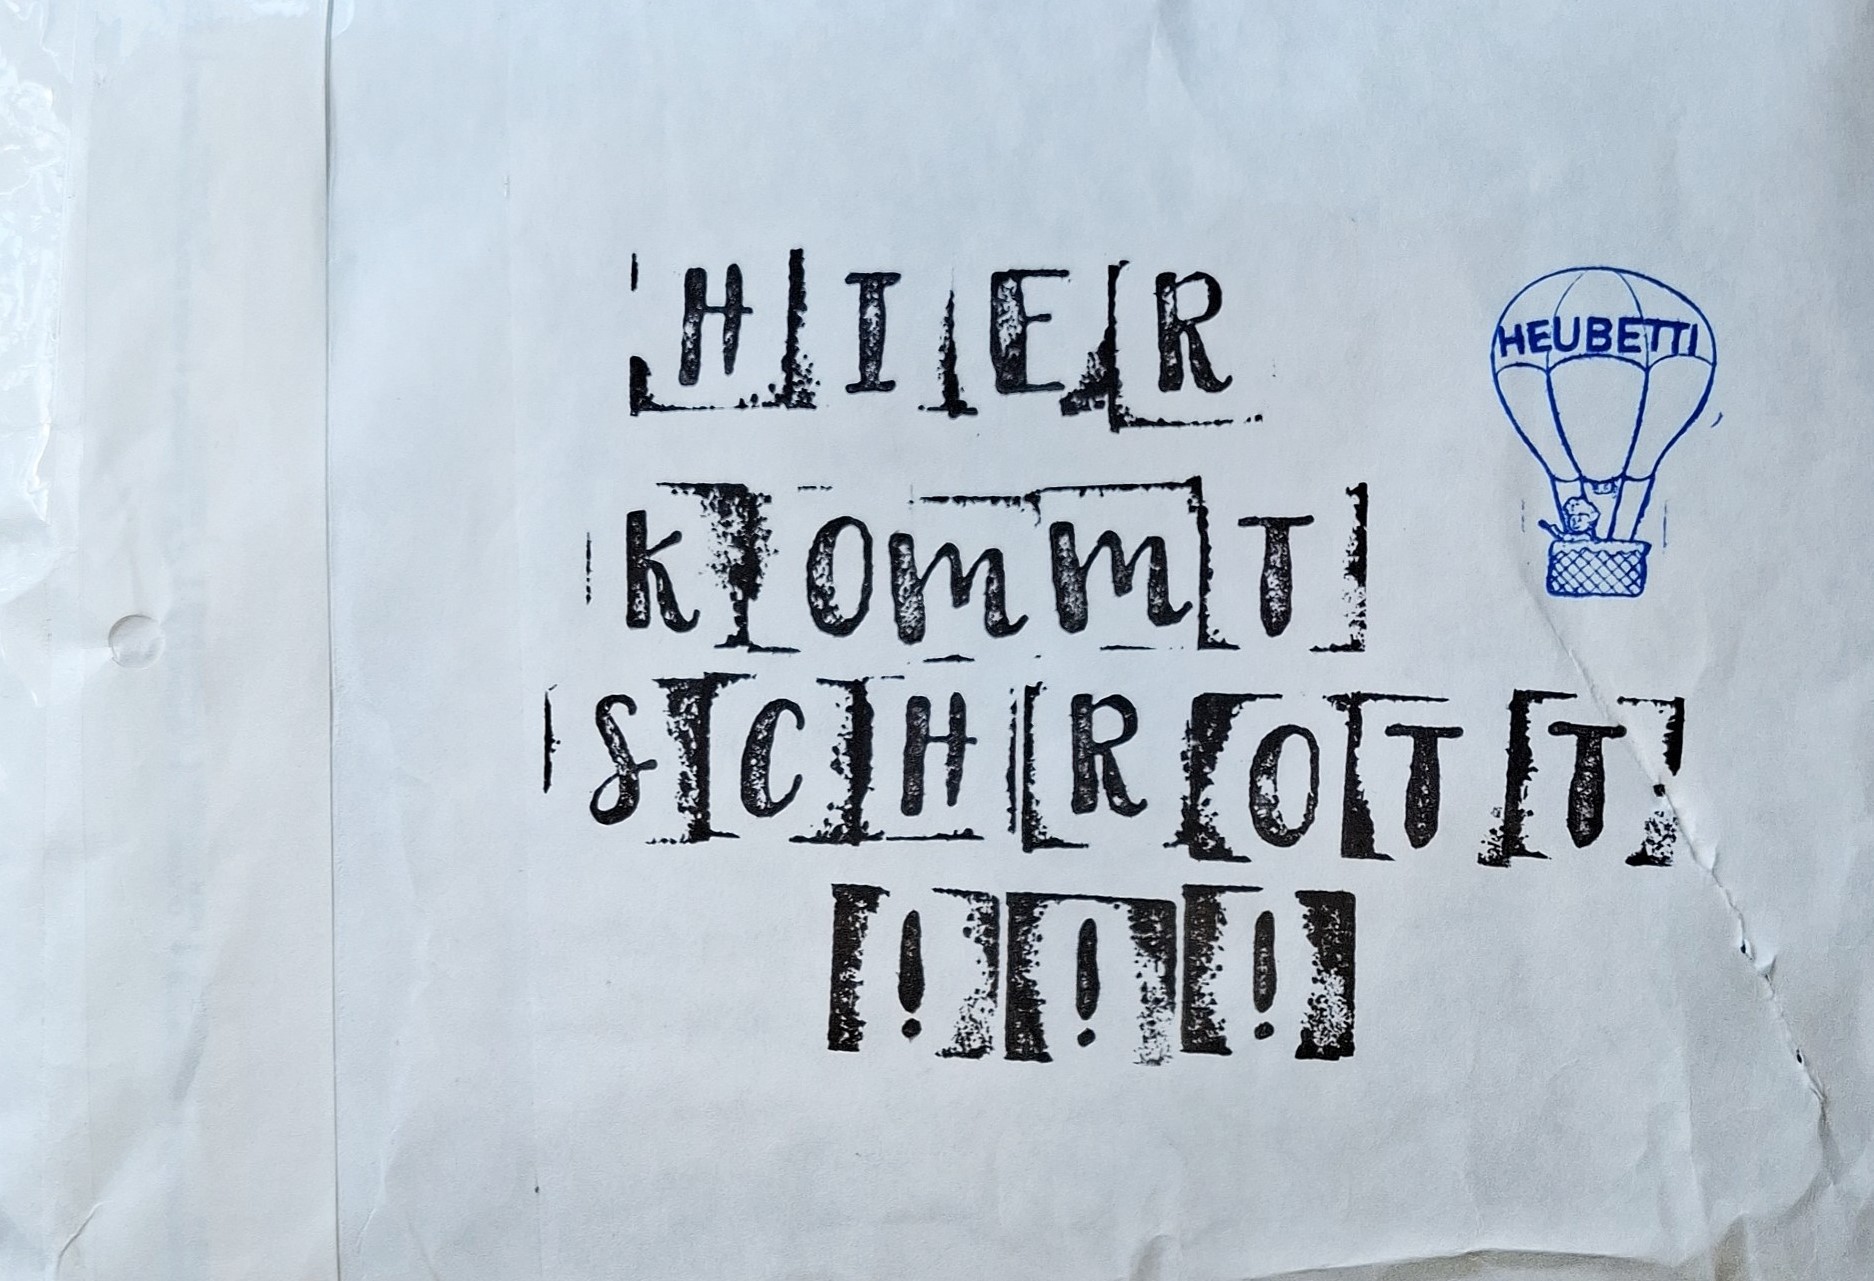 HIER
KOMMT
SCHROTT
!!!
HEUBETTI